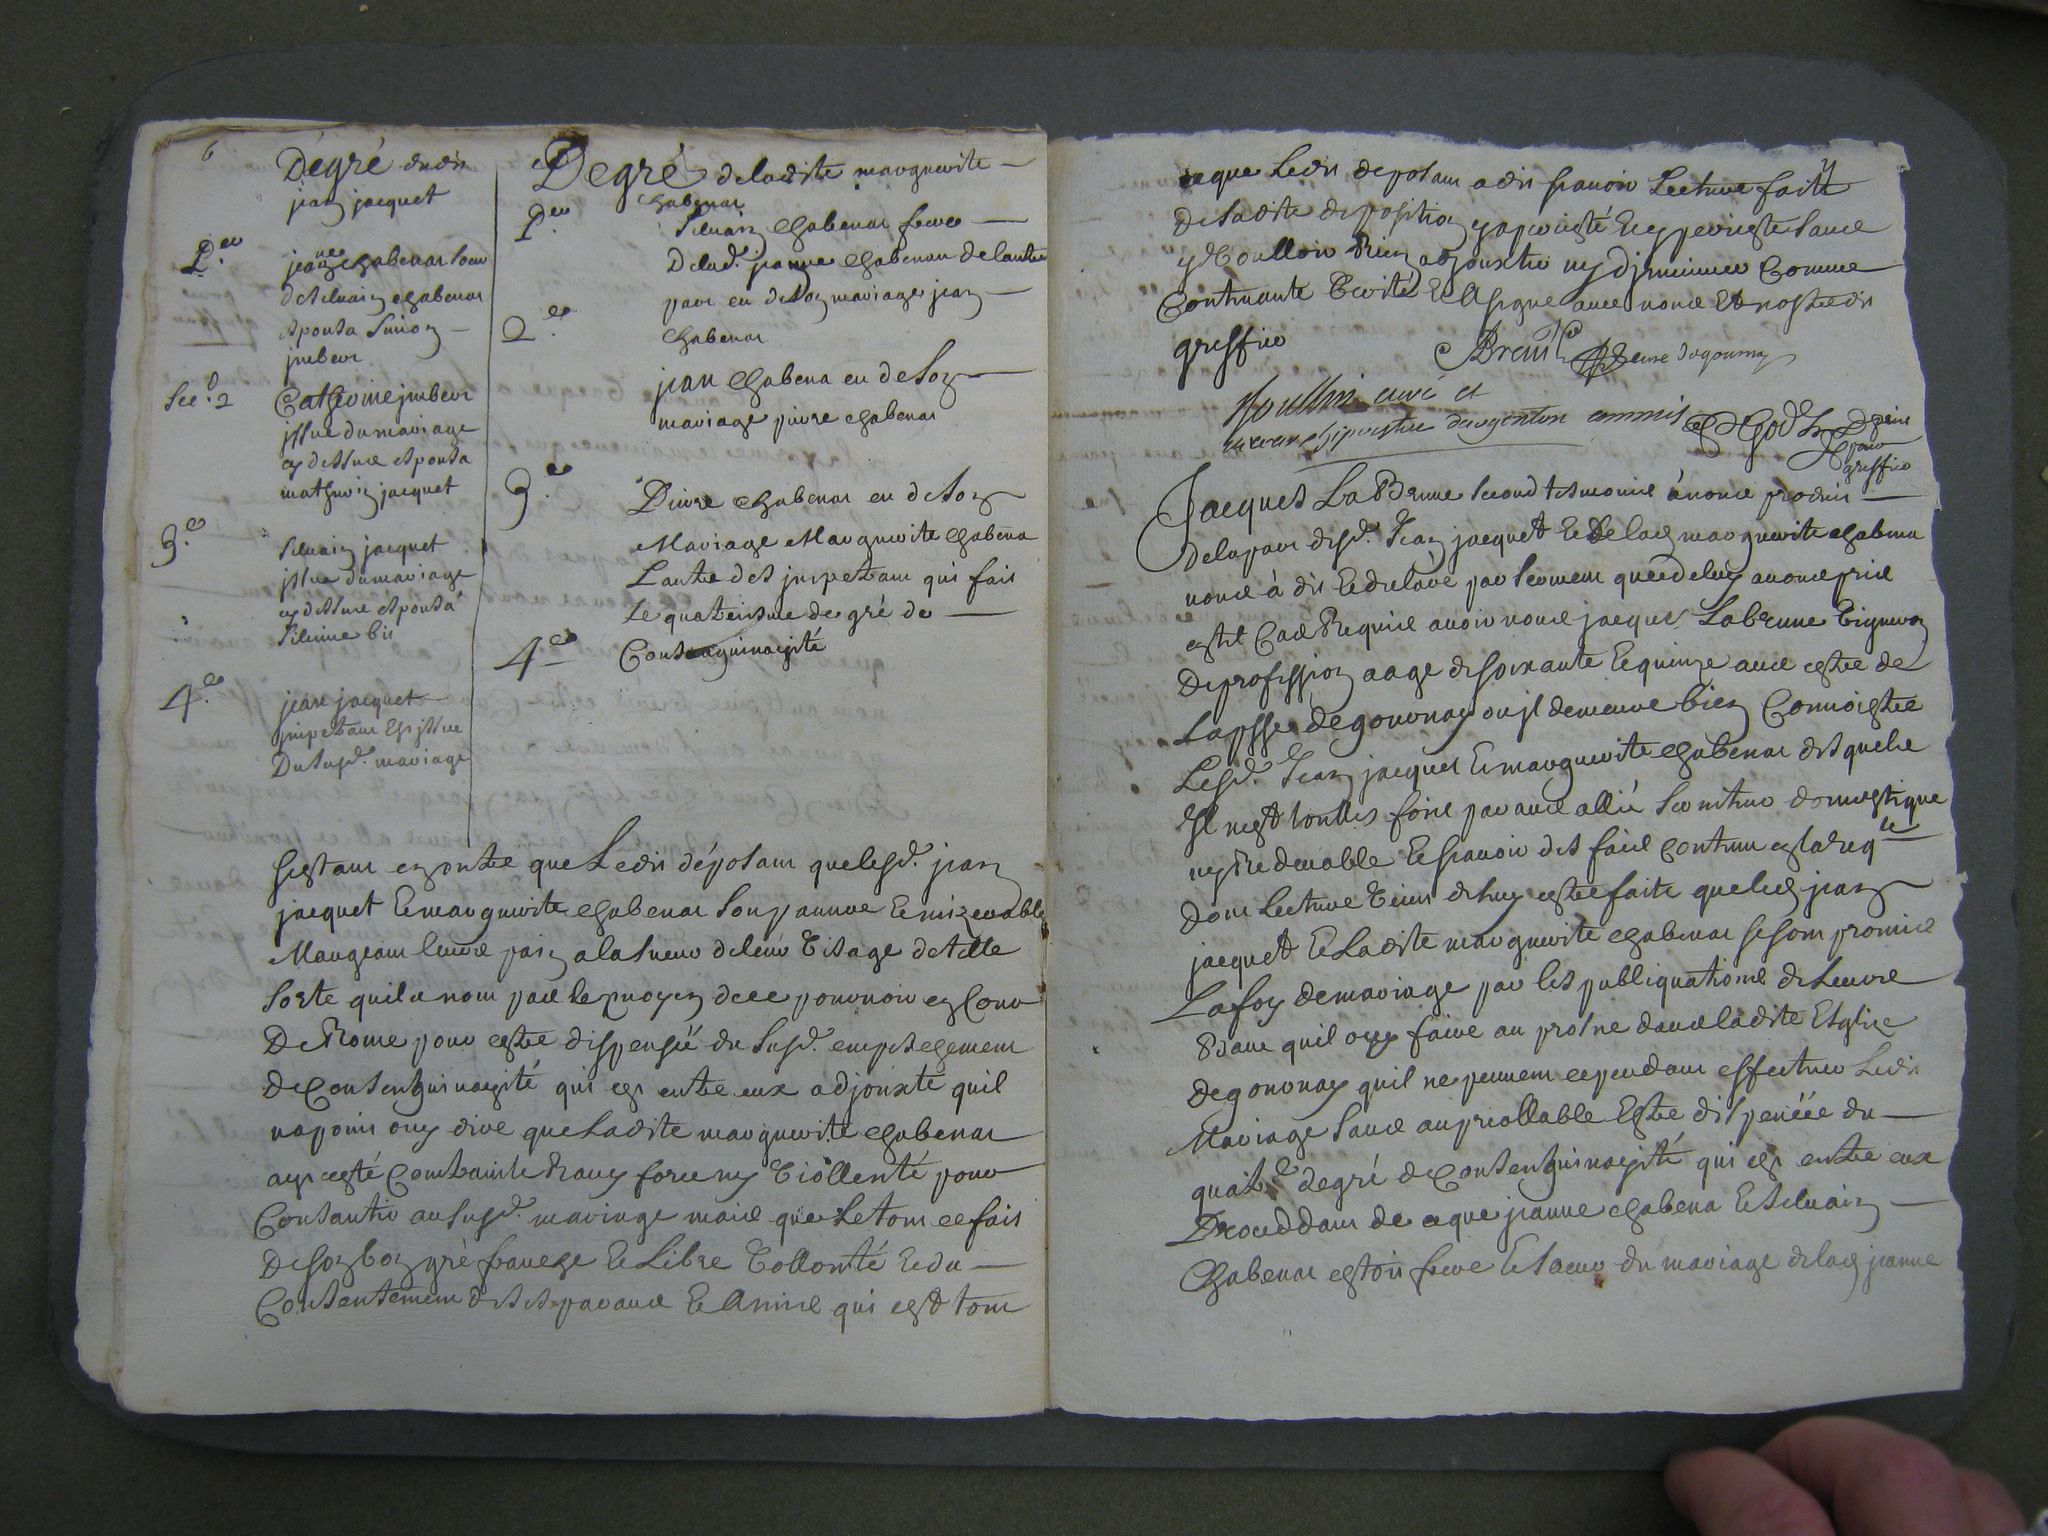 6
Dégré dudit
jean jacquet
1.er
jeanne chabenat soeur
de silvain chabenat
espousa simon
imbert
sec.d 2
Catherine imbert
issue du mariage
cy dessus espousa
mathurin jacquet
3.e
silvain jacquet
issue du mariage
cy dessus espousa
silvine bis
4.e
jean jacquet
impetant Est issue
Du susd. mariage
Degré de ladite marguerite
chabenat
1.er
silvain chabenat frere
De lad. jeanne chabenat de lautre
part eu de son mariage jean
2.e
chabenat
jean chabena eu de son
mariage pierre chabenat
3.e
Pierre chabenat eu de son
Mariage Marguerite chabena
Lautre des impetant qui fait
le quatriesme degré de
4.e
Consanguinayité
Gestant en outre que Ledit déposant que lesd. jean
jacquet Et marguerite chabenat sont pauvre Et mizerable
Mangeant leurs pain a la sueur de leur Visage de telle
sorte quil nont pas le moyen de ce pourvoir en Cour
De Rome pour estre dispensée du susd. empeschement
de Consentguinayité qui est entre eux adjouxté quil
na point ouy dire que Ladite marguerite chabenat
ayt esté Contrainte Ravy force ny Viollenté pour
Consantir au susd. mariage mais que Le tout ce fait
De son bon gré franche Et Libre Vollonté Et du
Consentement de ses parans Et Amis qui est tout
ce que Ledit deposant a dit scavoir Lecture faitte
De sadite deposition y a percisté Et y perciste sans
y Voulloir Rien adjouxter ny diminuer Comme
Contenante Verité Et A signe avec nous Et nostredit
greffier
Jacques La Brune second tesmoine à nous produit
De la part desd. Jean jacquet Et De lad marguerite chabena
nous à dit Et declare par serment que de luy avons pris
Et Requis avoir nous jacques Labrune Vigneron
De profession aage de soixante Et quinze ans estre de
La psse de gournay ou jl demeure bien Connoistre
Lesd. Jean jacquet Et marguerite chabenat desquels
Il nest touttes fois parans allié serviteur domestique
ny Redevable Et scavoir des faits contenu esla req.te
dont Lecture Vient de luy estre faite que led jean
jacquet Et Ladite marguerite chabenat se sont promis
La foy de mariage par les publiquations de Leurs
Bans quil ouy faire au prosne dans ladite Esglize
de gournay quil ne peuvent cependant effectuer Ledit
Mariage sans au preallable Estre dispencée du
quat.e degré de Consentguinayité qui est entre eux
Procceddant de ce que jeanne chabena Et silvain
Chabenat estoit frere Et soeur du mariage de lad jeanne